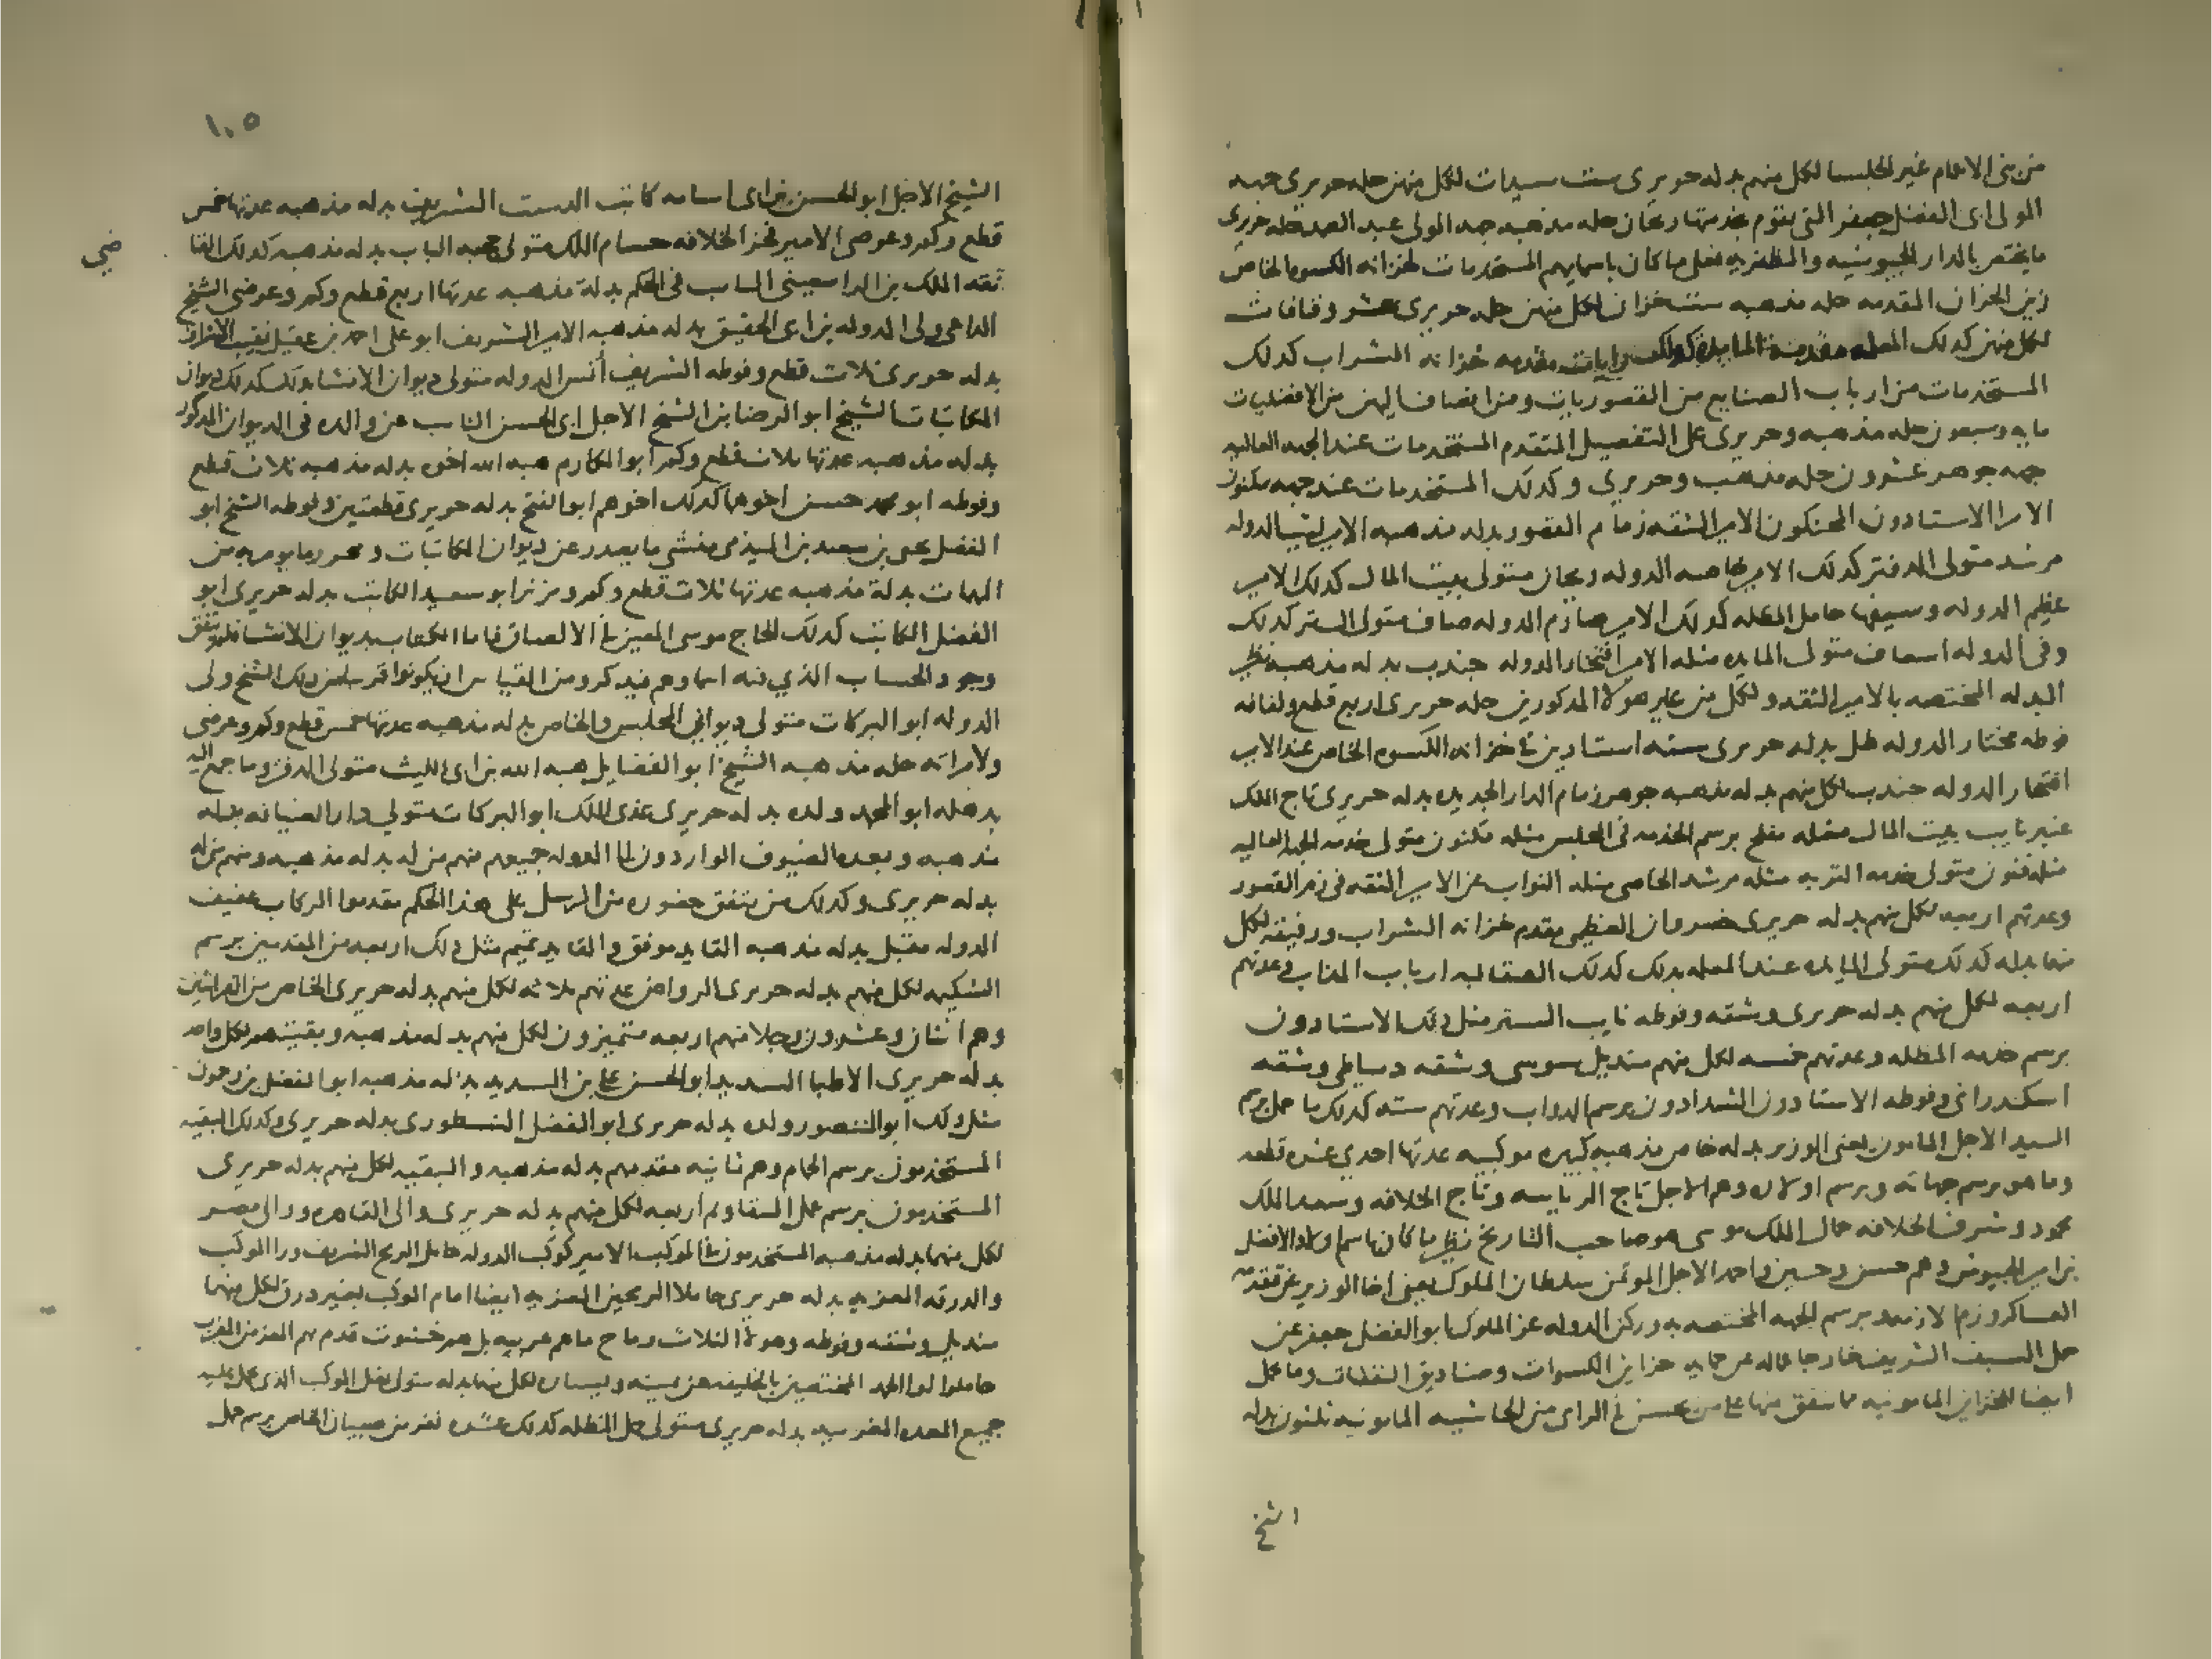 من بنى الاعام غير الجلسا لكل منهم بدله حريرى ست سيدات لكل منهن حله حريرى جهه
المولى ابى الفضل جعفر التى يقوم بخدمتها ريحان حله مذهبه جهه المولى عبد الصمد حله حريرى
ما يختص بالدار الجيوشيه والمظفريه فعلى ما كان باسمايهم المستخدمات لخزانه الكسوه الخاص
زين الخزان المقدمه حله مذهبه ست خزان لكل منهن حله حريرى عشر وقافات
لكل منهن كدلك المعلمه مقدمة المايده كدلك رايات مقدمه خزانه الشراب كدلك
المستخدمات من ارباب الصنايع من القصوريات ومن انضاف اليهن من الافضليات
مايه وسبعون حله مذهبه وحريرى على التفصيل المتقدم المستخدمات عند الجهه العاليه
جهه جوهر عشرون حله مذهب وحريرى وكدلك المستخدمات عند جهه مكنون
الامرا الاستادون المحنكون الامير الثقه زمام القصور بدله مذهبه الامير الدوله
مرشد متولى الدفتر كدلك الامير خاصه الدوله ريحان متولى بيت المال كدلك الامير
عظيم الدوله وسيفها حامل المظله كدلك الامير صارم الدوله صاف متولى الستر كدلك
وفى الدوله اسعاف متولى المايده مثله الامير افتخار الدوله جندب بدله مذهبه نظير
البدله المختصه بالامير الثقه ولكل من غير هولا المدكورين حله حريرى اربع قطع ولفافه
فوطه مختار الدوله ظل بدله حريرى سته استادين فى خزانه الكسوه الخاص عند الامير
افتخار الدوله جندب لكل منهم بدله مذهبه جوهر زمام الدار الجديده بدله حريرى تاج الملك
عنبر نايب بيت المال مثله مفلح برسم الخدمه فى المجلس مثله مكنون متولى خدمه الجهه العاليه
مثله فنون متولى خدمه التربه مثله مرشد الخاصى مثله النواب عن الامير الثقه فى زم القصور
وعدتهم اربعه لكل منهم بدله حريرى خسروان العظيمى مقدم خزانه الشراب ورفيقه لكل
منهما بدله كدلك متولى المايده عند المعلمه بدلك كدلك الصقالبه ارباب المداب وعدتهم
اربعه لكل منهم بدله حريرى وشقه وفوطه نايب الستر مثل دلك الاستادون
برسم خدمه المظله وعدتهم خمسه لكل منهم منديل سوسى وشقه دمياطى وشقه
اسكندرانى وفوطه الاستادون الشدادون برسم الدواب وعدتهم سته كدلك ما حمل برسم
السيد الاجل المامون يعنى الوزير بدله خاص مذهبه كبيره موكبيه عدتها احدى عشره قطعه
وما هو برسم جهاته وبرسم اولاده وهم الاجل تاج الرياسه وتاج الخلافه وسعد الملك
محمود وشرف الخلافه جمال الملك موسى هو صاحب التاريخ نظير ما كان باسم اولاد الافضل
بن امير الجيوش وهم حسن وحسين واحمد الاجل الموتمن سلطان الملوك يعنى اخا الوزير عن تقدمه
العساكر وزم الازمه وبرسم الجهه المختصه به وركن الدوله عز الملوك ابو الفضل جعفر عن
حمل السيف الشريف خارجا عما له من حمايه خزاين الكسوات وصناديق النفقات وما حمل
ايضا للخزاين المامونيه مما ينفق منها على من يحسن فى الراى من الحاشيه المامونيه ثلثون بدله
الشيخ
١٠٥
الشيخ الاجل ابو الحسن بن ابى اسامه كاتب الدست الشريف بدله مذهبه عدتها خمس
قطع وكم وعرضى الامير فخر الخلافه حسام الملك متولى حجبه الباب بدله مذهبه كدلك القا
ضى
ثقه الملك بن النايب فى الحكم بدلة مذهبه عدتها اربع قطع وكم وعرضى الشيخ
الداعى ولى الدوله بن ابى الحقيق بدله مذهبه الامير الشريف ابو على احمد بن عقيل نقيب الاشراف
بدله حريرى ثلاث قطع وفوطه الشريف أنس الدوله متولى ديوان الانشا بدله كدلك ديوان
المكاتبات الشيخ ابو الرضا بن الشيخ الاجل ابى الحسن النايب عن والده فى الديوان المدكور
بدله مذهبه عدتها ثلاث قطع وكم ابو المكارم هبه الله اخوه بدله مذهبه ثلاث قطع
وفوطه ابو محمد حسن اخوهما كدلك اخوهم ابو الفتح بدله حريرى قطعتين وفوطه الشيخ ابو
الفضل يحيى بن سعيد منشى ما يصدر عن ديوان المكاتبات ومحرر ما يومر به من
المهمات بدلة مذهبه عدتها ثلاث قطع وكم ومزنر ابو سعيد الكاتب بدله حريرى ابو
الفضل الكاتب كدلك الحاج موسى المعين فى الالصاق فاما الكتاب بديوان الانشا فلم يتفق
وجود الحساب الذي فيه اسماوهم فيدكر ومن القياس ان يكونوا قريبا من دلك الشيخ ولى
الدوله ابو البركات متولى ديوانى المجلس والخاص بدله مذهبه عدتها خمس قطع وكم وعرضى
ولامراته حله مذهبه الشيخ ابو الفضايل هبه الله بن ابى الليث متولى الدفتر وما جمع اليه
بدله ابو المجد ولده بدله حريرى عدى الملك ابو البركات متولي دار الضيافه بدله
مذهبه وبعده الضيوف الواردون الى الدوله جميعهم منهم من له بدله مذهبه ومنهم من له
بدله حريرى وكدلك من يتفق حضوره من الرسل على هذا الحكم مقدموا الركاب عفيف
الدوله مقبل بدله مذهبه القايد موفق والقايد تميم مثل دلك اربعه من المقدمين برسم
الشكيمه لكل منهم بدله حريرى الرواض عدتهم ثلاثه لكل منهم بدله حريرى الخاص من الفراشين
وهم اثنان وعشرون رجلا منهم اربعه متميزون لكل منهم بدله مذهبه وبقيتهم لكل واحد
بدله حريرى الاطبا السديد ابو الحسن على بن السديد بدله مذهبه ابو الفضل بن
مثل دلك ابو المنصور ولده بدله حريرى ابو الفضل النسطورى بدله حريرى وكدلك البقيه
المستخدمون برسم الحمام وهم ثمانيه مقدمهم بدله مذهبه والبقيه لكل منهم بدله حريرى
المستخدمون برسم حمل السقا وهم اربعه لكل منهم بدله حريرى والى القاهره ووالى مصر
لكل منهما بدله مذهبه المستخدمون فى الموكب الامير كوكب الدوله حامل الرمح الشريف ورا الموكب
والدرقه المعزيه بدله حريرى حاملا الرمحين المعزيه ايضا امام الموكب بغير درق لكل منهما
منديل وشقه وفوطه وهولا الثلاث رماح ما هى عربيه بل هى خشوت قدم بهم المعز من الغرب
حاملوا لواا الحمد المختصين بالخليفه عن يمينه ويساره لكل منهما بدله متولى بغل الموكب الذى يحمل عليه
جميع العده المغربيه بدله حريرى متولى حمل المظله كدلك عشره نفر من صبيان الخاص برسم حمل